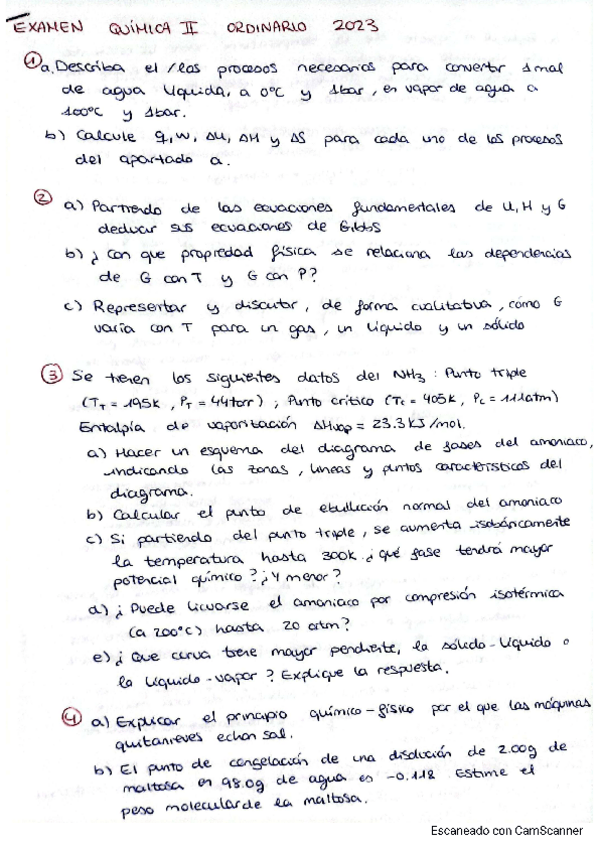 EXAMEN QUÍMICA II ORDINARIO 2023
① a. Describa el / los procesos necesarios para convertir 1 mol
de agua líquida, a 0°C y 1 bar, en vapor de agua a
100°C y 1 bar.
b) Calcule q, w, ΔU, ΔH y ΔS para cada uno de los procesos
del apartado a.
② a) Partiendo de las ecuaciones fundamentales de U, H y G
deducir sus ecuaciones de Gibbs
b) ¿ Con que propiedad física se relaciona las dependencias
de G con T y G con P?
c) Representar y discutir, de forma cualitativa, cómo G
varía con T para un gas, un líquido y un sólido
③ Se tienen los siguientes datos del NH3 : Punto triple
(TT = 195K, PT = 44 torr) ; Punto crítico (Tc = 405K, Pc = 111 atm)
Entalpía de vaporización ΔHvap = 23.3 KJ/mol.
a) Hacer un esquema del diagrama de fases del amoniaco,
indicando las zonas, líneas y puntos característicos del
diagrama.
b) Calcular el punto de ebullición normal del amoniaco
c) Si partiendo del punto triple, se aumenta isobáricamente
la temperatura hasta 300K ¿ qué fase tendrá mayor
potencial químico? ¿Y menor?
d) ¿ Puede licuarse el amoniaco por compresión isotérmica
(a 200°C) hasta 20 atm?
e) ¿ Que curva tiene mayor pendiente, la sólido-líquido o
la líquido-vapor? Explique la respuesta.
④ a) Explicar el principio químico-físico por el que las máquinas
quitanieves echan sal.
b) El punto de congelación de una disolución de 2.00g de
maltosa en 98.0g de agua es -0.118 Estime el
peso molecular de la maltosa.
Escaneado con CamScanner